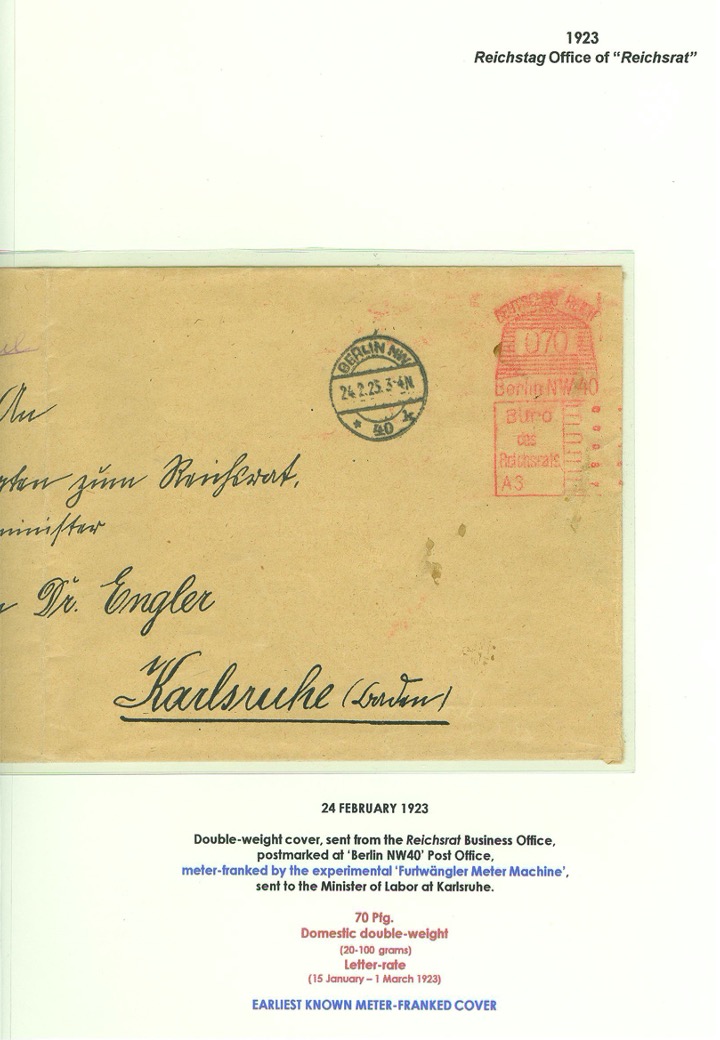 1923
Reichstag Office of "Reichsrat"
DEUTSCHES REICH
070
Berlin NW 40
Büro
des
Reichsrats
A3
BERLIN NW
24.2.23. 3-4N
* 40 k
An
zum Reichsrat,
minister
Dr. Engler
Karlsruhe (Baden)
24 FEBRUARY 1923
Double-weight cover, sent from the Reichsrat Business Office,
postmarked at 'Berlin NW40' Post Office,
meter-franked by the experimental 'Furtwängler Meter Machine',
sent to the Minister of Labor at Karlsruhe.
70 Pfg.
Domestic double-weight
(20-100 grams)
Letter-rate
(15 January – 1 March 1923)
EARLIEST KNOWN METER-FRANKED COVER